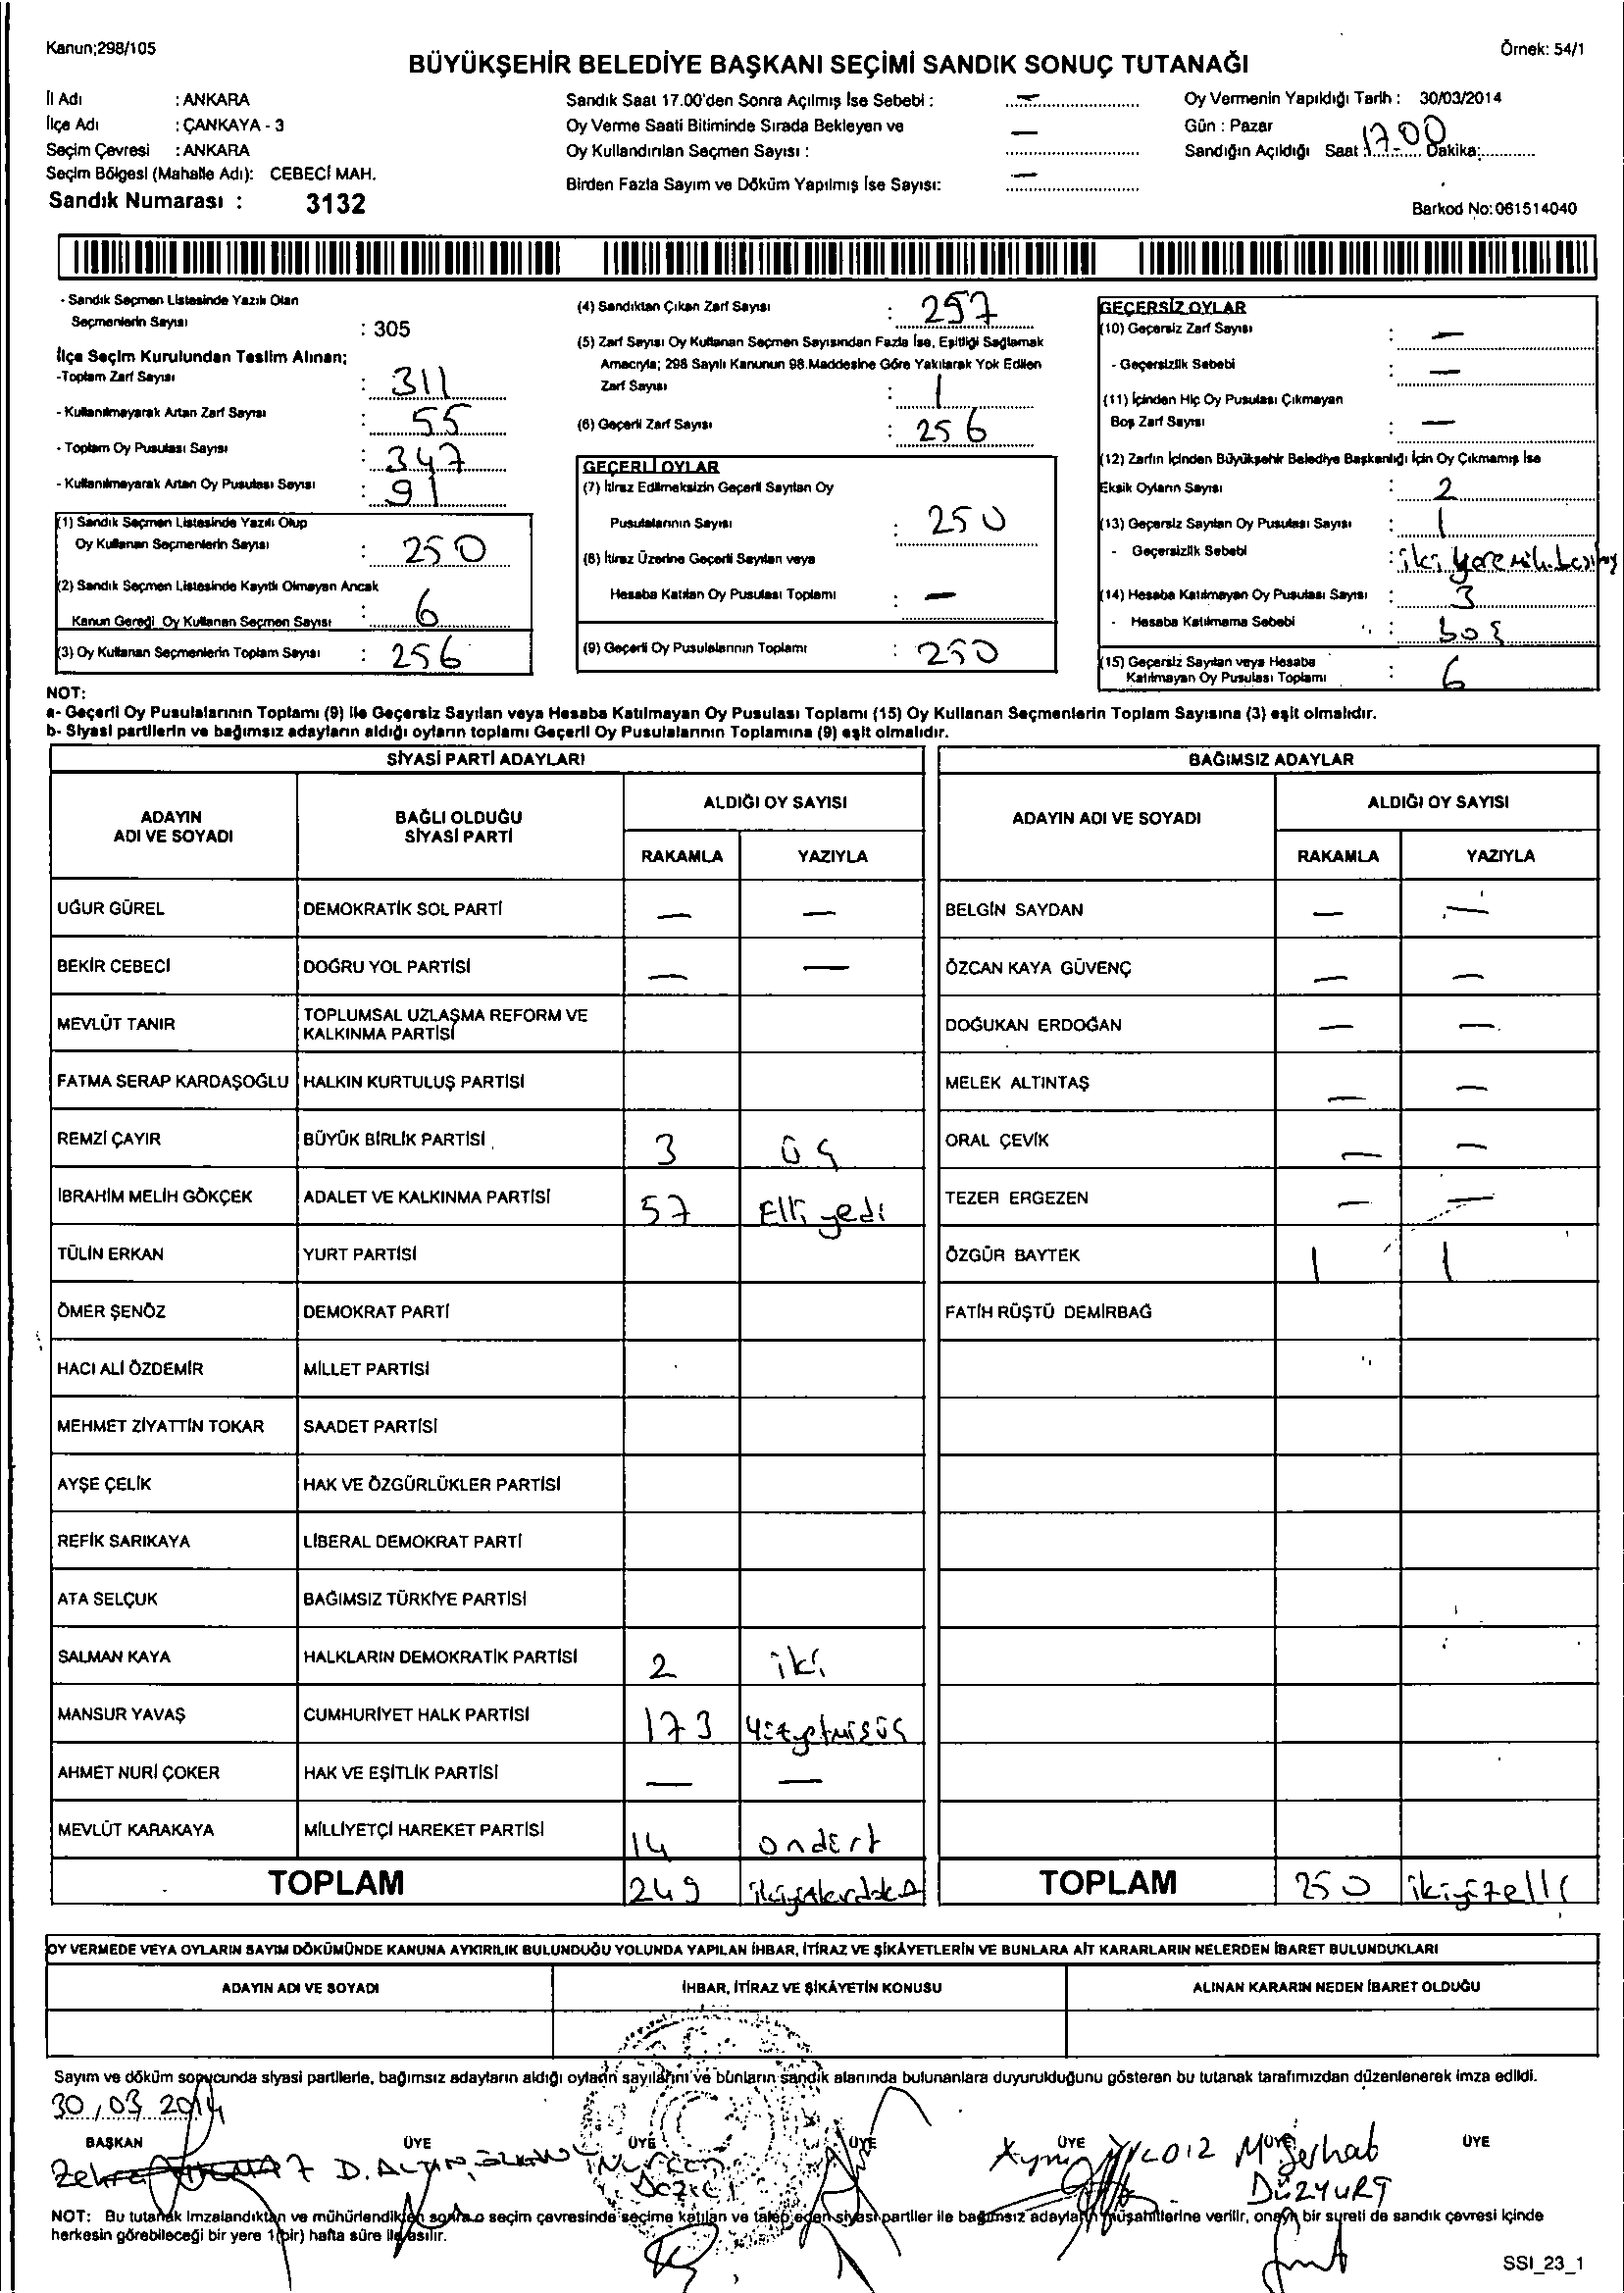 Kanun;298/105
Örnek: 54/1
BÜYÜKŞEHİR BELEDİYE BAŞKANI SEÇİMİ SANDIK SONUÇ TUTANAĞI
İl Adı : ANKARA
İlçe Adı : ÇANKAYA - 3
Seçim Çevresi : ANKARA
Seçim Bölgesi (Mahalle Adı): CEBECİ MAH.
Sandık Numarası : 3132
Sandık Saat 17.00'den Sonra Açılmış İse Sebebi : —
Oy Verme Saati Bitiminde Sırada Bekleyen ve
Oy Kullandırılan Seçmen Sayısı : —
Birden Fazla Sayım ve Döküm Yapılmış İse Sayısı: —
Oy Vermenin Yapıldığı Tarih : 30/03/2014
Gün : Pazar
Sandığın Açıldığı Saat : 17.00 Dakika:
Barkod No:061514040
- Sandık Seçmen Listesinde Yazılı Olan
Seçmenlerin Sayısı : 305
İlçe Seçim Kurulundan Teslim Alınan;
-Toplam Zarf Sayısı : 311
- Kullanılmayarak Artan Zarf Sayısı : 55
- Toplam Oy Pusulası Sayısı : 347
- Kullanılmayarak Artan Oy Pusulası Sayısı : 91
(1) Sandık Seçmen Listesinde Yazılı Olup
Oy Kullanan Seçmenlerin Sayısı : 250
(2) Sandık Seçmen Listesinde Kayıtlı Olmayan Ancak
Kanun Gereği Oy Kullanan Seçmen Sayısı : 6
(3) Oy Kullanan Seçmenlerin Toplam Sayısı : 256
(4) Sandıktan Çıkan Zarf Sayısı : 257
(5) Zarf Sayısı Oy Kullanan Seçmen Sayısından Fazla İse, Eşitliği Sağlamak
Amacıyla; 298 Sayılı Kanunun 98.Maddesine Göre Yakılarak Yok Edilen
Zarf Sayısı : 1
(6) Geçerli Zarf Sayısı : 256
GEÇERLİ OYLAR
(7) İtiraz Edilmeksizin Geçerli Sayılan Oy
Pusulalarının Sayısı : 250
(8) İtiraz Üzerine Geçerli Sayılan veya
Hesaba Katılan Oy Pusulası Toplamı : —
(9) Geçerli Oy Pusulalarının Toplamı : 250
GEÇERSİZ OYLAR
(10) Geçersiz Zarf Sayısı : —
- Geçersizlik Sebebi : —
(11) İçinden Hiç Oy Pusulası Çıkmayan
Boş Zarf Sayısı : —
(12) Zarfın İçinden Büyükşehir Belediye Başkanlığı İçin Oy Çıkmamış İse
Eksik Oyların Sayısı : 2
(13) Geçersiz Sayılan Oy Pusulası Sayısı : 1
- Geçersizlik Sebebi : iki yere
(14) Hesaba Katılmayan Oy Pusulası Sayısı : 3
- Hesaba Katılmama Sebebi : boş
(15) Geçersiz Sayılan veya Hesaba
Katılmayan Oy Pusulası Toplamı : 6
NOT:
a- Geçerli Oy Pusulalarının Toplamı (9) ile Geçersiz Sayılan veya Hesaba Katılmayan Oy Pusulası Toplamı (15) Oy Kullanan Seçmenlerin Toplam Sayısına (3) eşit olmalıdır.
b- Siyasi partilerin ve bağımsız adayların aldığı oyların toplamı Geçerli Oy Pusulalarının Toplamına (9) eşit olmalıdır.
SİYASİ PARTİ ADAYLARI
ADAYIN ADI VE SOYADI BAĞLI OLDUĞU SİYASİ PARTİ ALDIĞI OY SAYISI
RAKAMLA YAZIYLA
UĞUR GÜREL DEMOKRATİK SOL PARTİ — —
BEKİR CEBECİ DOĞRU YOL PARTİSİ — —
MEVLÜT TANIR TOPLUMSAL UZLAŞMA REFORM VE KALKINMA PARTİSİ
FATMA SERAP KARDAŞOĞLU HALKIN KURTULUŞ PARTİSİ
REMZİ ÇAYIR BÜYÜK BİRLİK PARTİSİ 3 üç
İBRAHİM MELİH GÖKÇEK ADALET VE KALKINMA PARTİSİ 57 Elli yedi
TÜLİN ERKAN YURT PARTİSİ
ÖMER ŞENÖZ DEMOKRAT PARTİ
HACI ALİ ÖZDEMİR MİLLET PARTİSİ
MEHMET ZİYATTİN TOKAR SAADET PARTİSİ
AYŞE ÇELİK HAK VE ÖZGÜRLÜKLER PARTİSİ
REFİK SARIKAYA LİBERAL DEMOKRAT PARTİ
ATA SELÇUK BAĞIMSIZ TÜRKİYE PARTİSİ
SALMAN KAYA HALKLARIN DEMOKRATİK PARTİSİ 2 iki
MANSUR YAVAŞ CUMHURİYET HALK PARTİSİ 173 Yüzyetmişüç
AHMET NURİ ÇOKER HAK VE EŞİTLİK PARTİSİ — —
MEVLÜT KARAKAYA MİLLİYETÇİ HAREKET PARTİSİ 14 ondört
TOPLAM 249
BAĞIMSIZ ADAYLAR
ADAYIN ADI VE SOYADI ALDIĞI OY SAYISI
RAKAMLA YAZIYLA
BELGİN SAYDAN — —
ÖZCAN KAYA GÜVENÇ — —
DOĞUKAN ERDOĞAN — —
MELEK ALTINTAŞ — —
ORAL ÇEVİK — —
TEZER ERGEZEN — —
ÖZGÜR BAYTEK 1 1
FATİH RÜŞTÜ DEMİRBAĞ
TOPLAM 250 ikiyüzelli
OY VERMEDE VEYA OYLARIN SAYIM DÖKÜMÜNDE KANUNA AYKIRILIK BULUNDUĞU YOLUNDA YAPILAN İHBAR, İTİRAZ VE ŞİKÂYETLERİN VE BUNLARA AİT KARARLARIN NELERDEN İBARET BULUNDUKLARI
ADAYIN ADI VE SOYADI İHBAR, İTİRAZ VE ŞİKÂYETİN KONUSU ALINAN KARARIN NEDEN İBARET OLDUĞU
Sayım ve döküm sonucunda siyasi partilerle, bağımsız adayların aldığı oyların sayılarını ve bunların sandık alanında bulunanlara duyurulduğunu gösteren bu tutanak tarafımızdan düzenlenerek imza edildi.
30/03 2014
BAŞKAN ÜYE ÜYE ÜYE ÜYE ÜYE ÜYE
Zehra
YILDIZ
DÜZYURT
NOT: Bu tutanak imzalandıktan ve mühürlendikten sonra o seçim çevresinde seçime katılan ve talep eden siyasi partiler ile bağımsız adayların müşahitlerine verilir, onaylı bir sureti de sandık çevresi içinde
herkesin görebileceği bir yere 1(bir) hafta süre ile asılır.
SSI_23_1